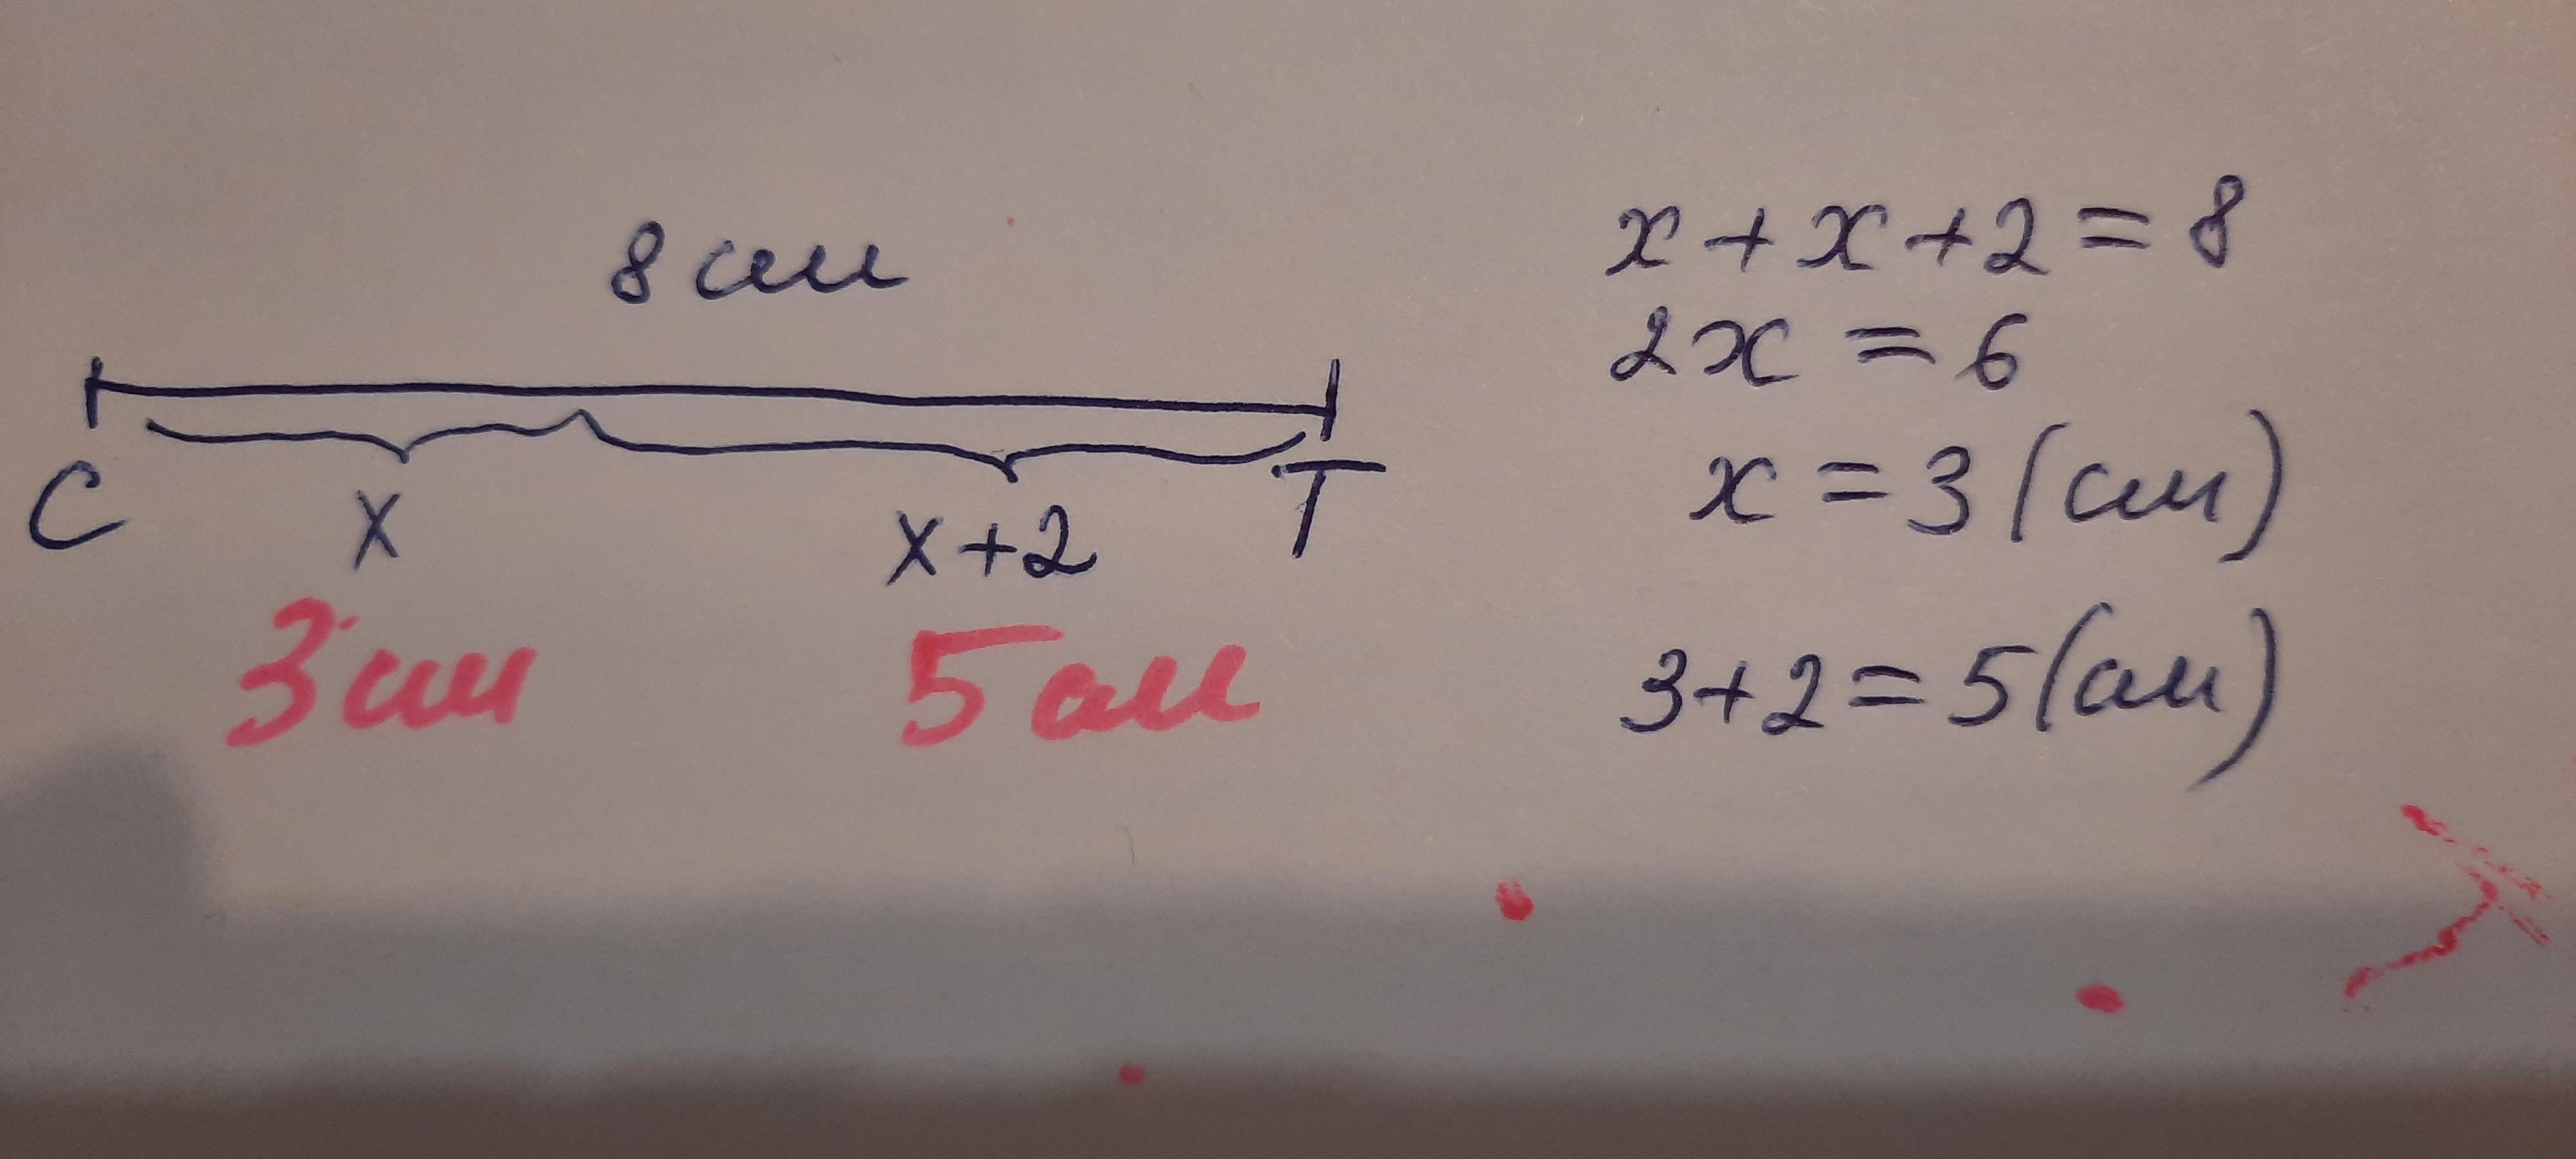 8 см
C T
x x+2
3 см 5 см
x + x + 2 = 8
2x = 6
x = 3 (см)
3+2=5(см)